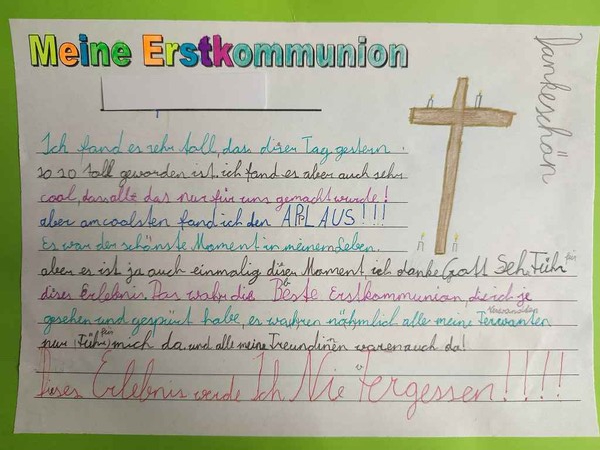 Meine Erstkommunion
Dankeschön
Ich fand es sehr toll, das diser Tag gestern
so so toll geworden ist. ich fand es aber auch sehr
cool, das alle das nur für uns gemacht wurde!
aber am coolsten fand ich den APPLAUS!!!
Es war der schönste Moment in meinem Leben.
aber es ist ja auch einmalig disen Moment ich danke Gott Sehr Führ für
dises Erlebnis. Das wahr die Beste Erstkommunion, die ich je
gesehen und gespürt habe, es wahren nähmlich alle meine Ferwanten Verwandten
nur (Führ) für mich da. und alle meine Freundinen waren auch da!
Dises Erlebnis werde Ich Nie Fergessen!!!!